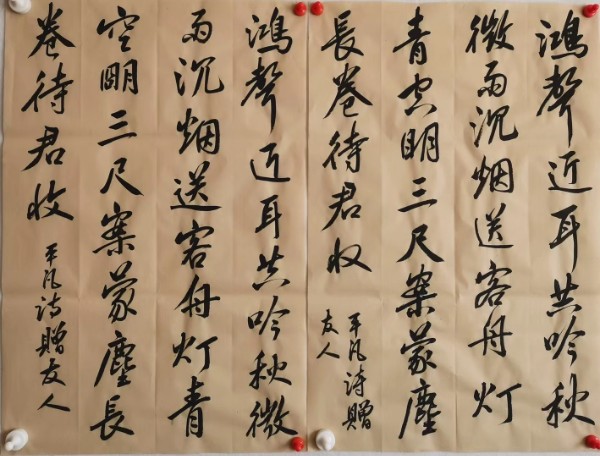 鴻聲近耳共吟秋
微雨沉烟送客舟灯
青空明三尺案蒙塵
長卷待君收
平凡诗贈
友人
鴻聲近耳共吟秋微
雨沉烟送客舟灯青
空明三尺案蒙塵長
卷待君收
平凡诗贈友人